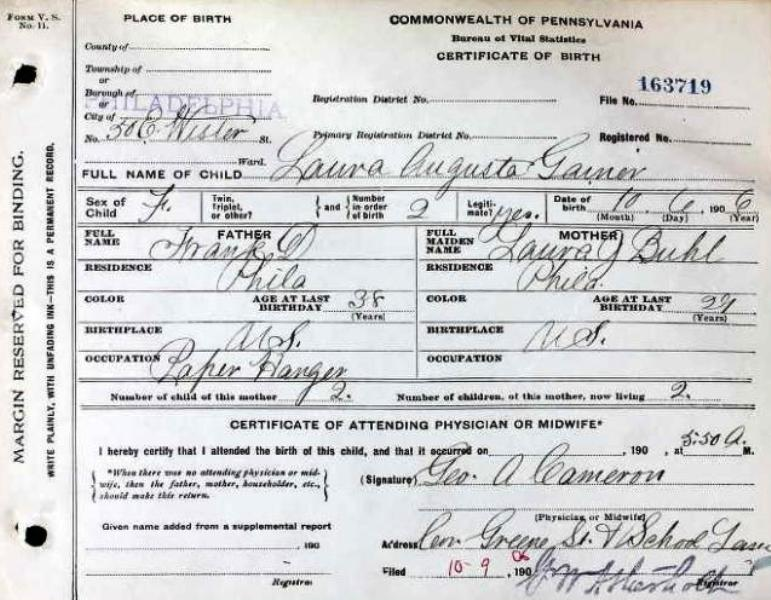 FORM V. S. No. 11.
PLACE OF BIRTH
COMMONWEALTH OF PENNSYLVANIA
Bureau of Vital Statistics
CERTIFICATE OF BIRTH
County of
Township of
or
Borough of
or
PHILADELPHIA
City of
No. 50 E. Wister St.
Ward.
Registration District No.
File No. 163719
Primary Registration District No.
Registered No.
FULL NAME OF CHILD Laura Augusta Gainor
Sex of Child F. Twin, Triplet, or other? { and { Number in order of birth 2 Legiti- mate? yes. Date of birth 10 6, 1906
(Month) (Day) (Year)
FATHER
FULL NAME Frank D
RESIDENCE Phila
COLOR AGE AT LAST BIRTHDAY 38
(Years)
BIRTHPLACE U.S.
OCCUPATION Paper Hanger
MOTHER
FULL MAIDEN NAME Laura J Buhl
RESIDENCE Phila.
COLOR AGE AT LAST BIRTHDAY
(Years)
BIRTHPLACE U.S.
OCCUPATION
Number of child of this mother 2. Number of children, of this mother, now living 2.
CERTIFICATE OF ATTENDING PHYSICIAN OR MIDWIFE*
I hereby certify that I attended the birth of this child, and that it occurred on , 190 , at 5:50 A. M.
{ *When there was no attending physician or mid- wife, then the father, mother, householder, etc., should make this return. }
(Signature) Geo. A Cameron
(Physician or Midwife)
Given name added from a supplemental report
190
Registrar
Address Cor. Greene St. & School Lane
Filed 10-9, 190 06
Registrar
MARGIN RESERVED FOR BINDING.
WRITE PLAINLY, WITH UNFADING INK—THIS IS A PERMANENT RECORD.